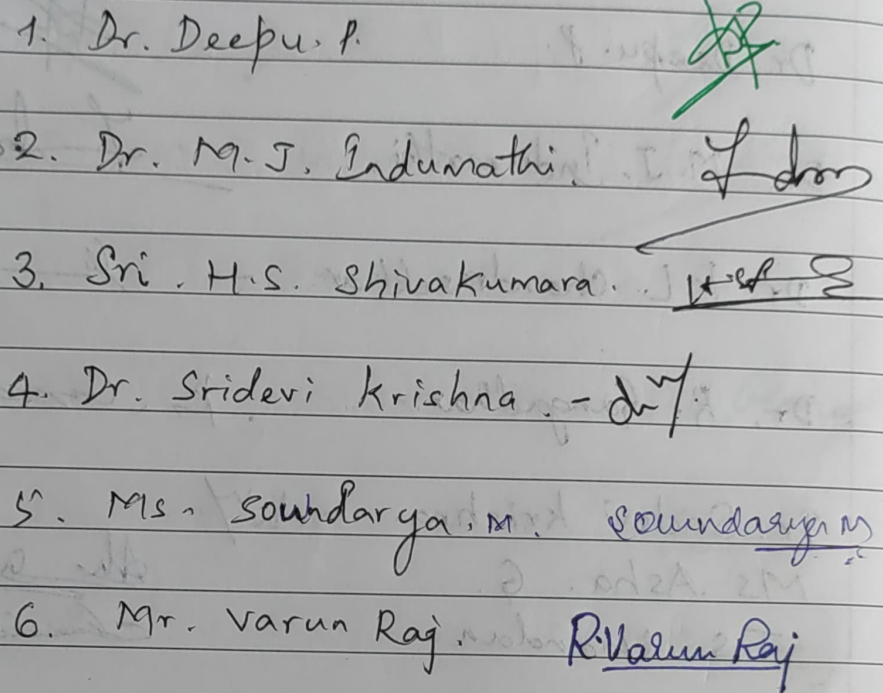 1. Dr. Deepu. P.
2. Dr. M. J. Indumathi.
3. Sri. H.S. Shivakumara.
4. Dr. Sridevi Krishna. -
5. Ms. Soundarya. M. Soundarya M
6. Mr. Varun Raj. R. Varun Raj